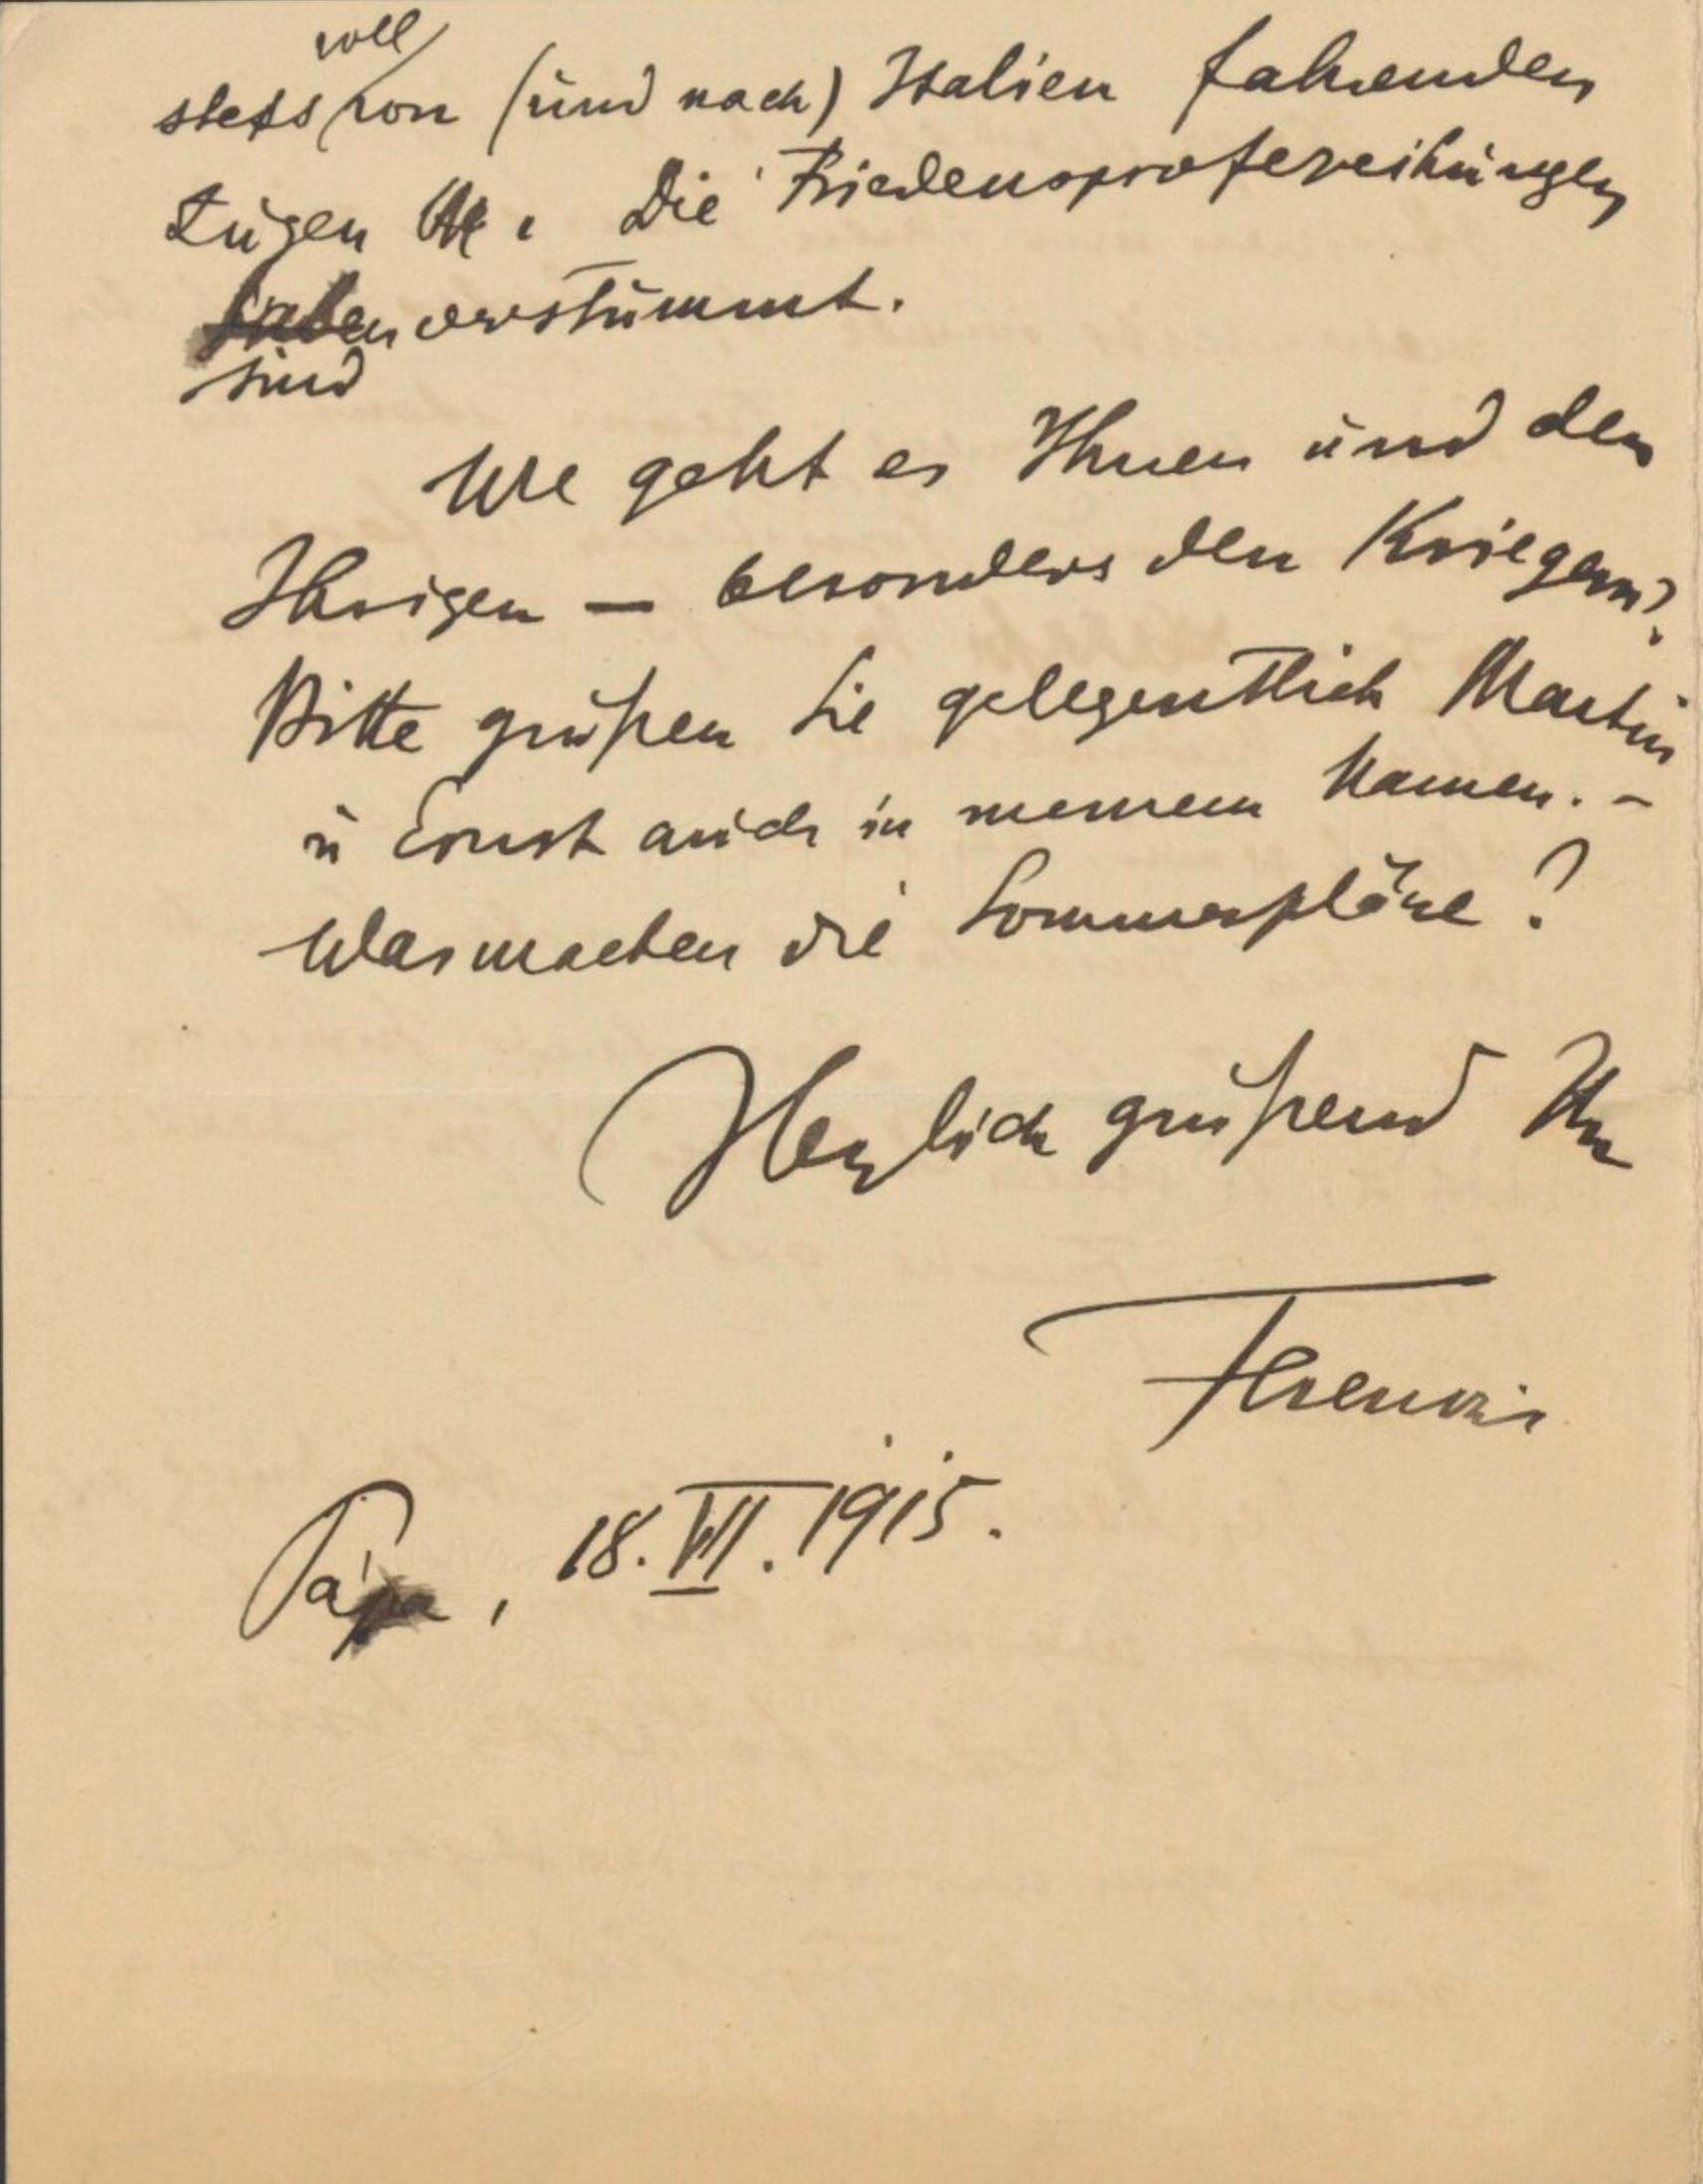 voll
stets von (und nach) Italien fahrenden
Zügen. Die Friedensprofezeihungen
haben verstummt.
sind
Wie geht es Ihnen und den
Ihrigen – besonders den Kriegern?
Bitte grüßen Sie gelegentlich Martin
u Ernst auch in meinem Namen. –
Was machen die Sommerpläne?
Herzlich grüßend Ihr
Ferenczi
Pápa, 18. VII. 1915.